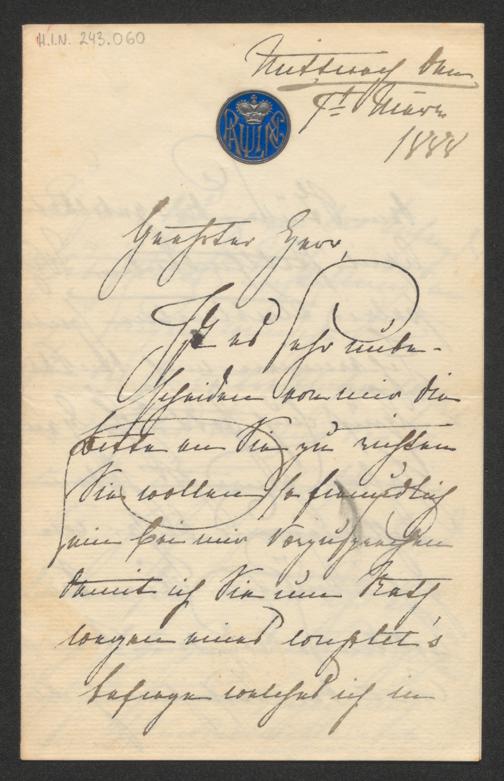 H.I.N. 243.060
Mittwoch den
7t März
1888
PAULINE
Geehrter Herr,
Ist es sehr unbe-
scheiden von mir die
Bitte an Sie zu richten
Sie wollen so freundlich
sein bei mir vorzusprechen
damit ich Sie um Rath
wegen eines Couplet's
befrage welches ich in